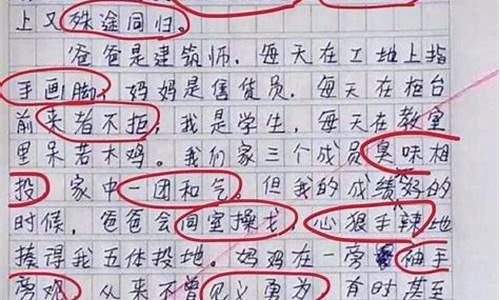 上又殊途同归。
爸爸是建筑师，每天在工地上指
手画脚，妈妈是售货员，每天在柜台
前来者不拒，我是学生，每天在教室
里呆若木鸡。我们家三个成员臭味相
投 家中一团和气。但我的成绩不好的
时候，爸爸会同室操戈，心狠手辣地
揍得我五体投地。妈妈在一旁袖手
旁观 从来不曾见义勇为 有时甚至